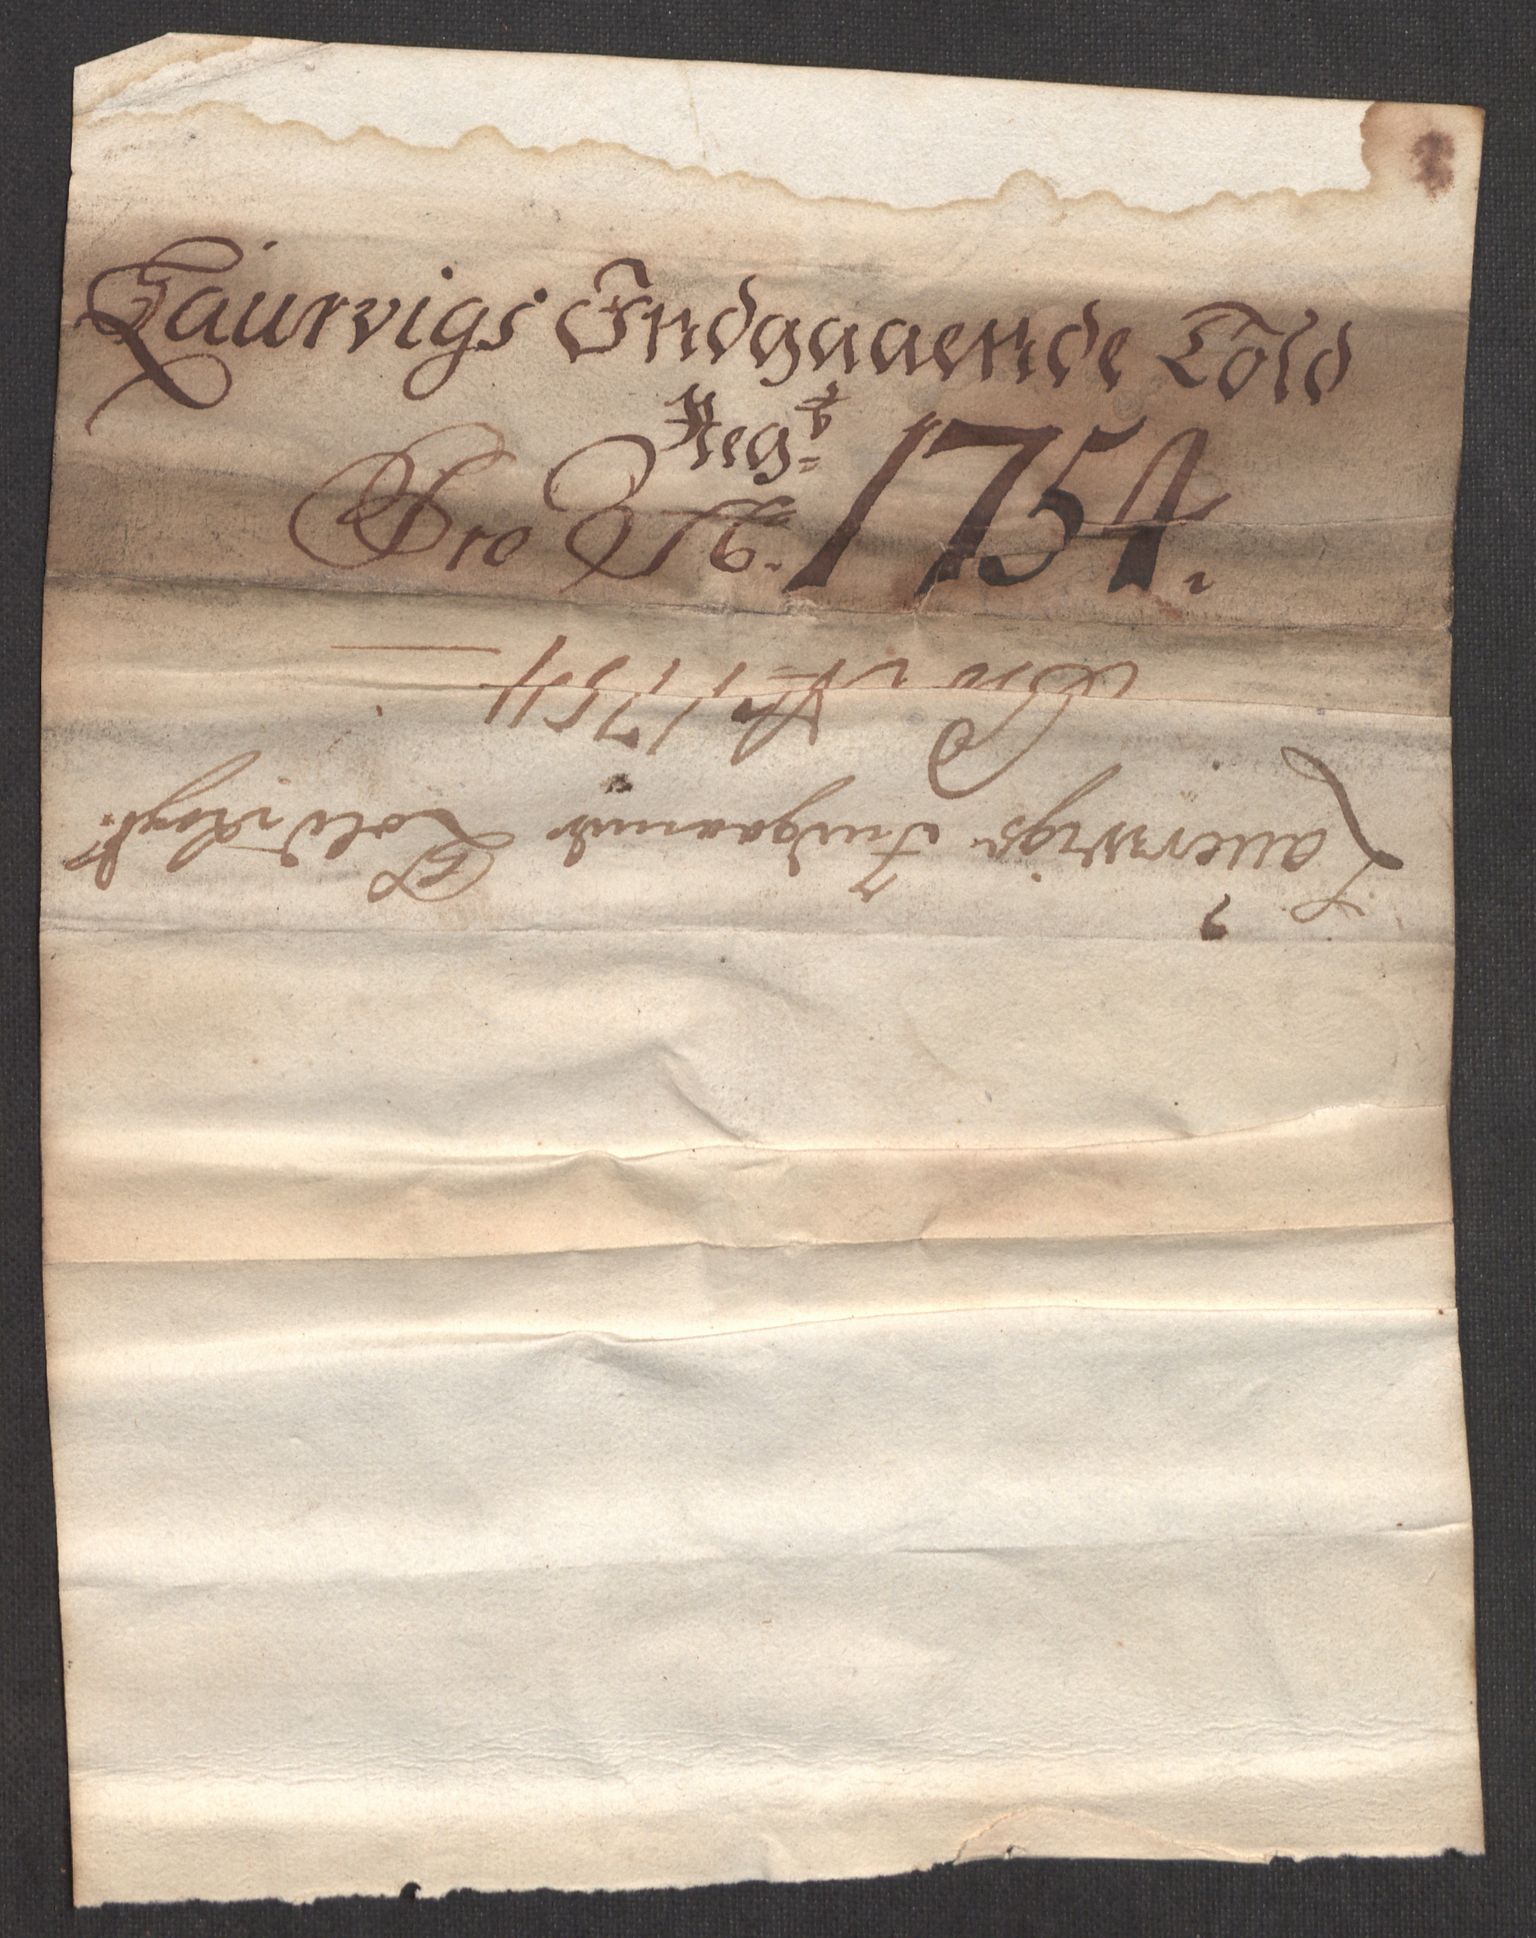 Laurvigs Indgaaende Told
Regt
Pro Ao. 1754.
Laurwigs Indgaaende Told Regt.
Pro Ao 1754